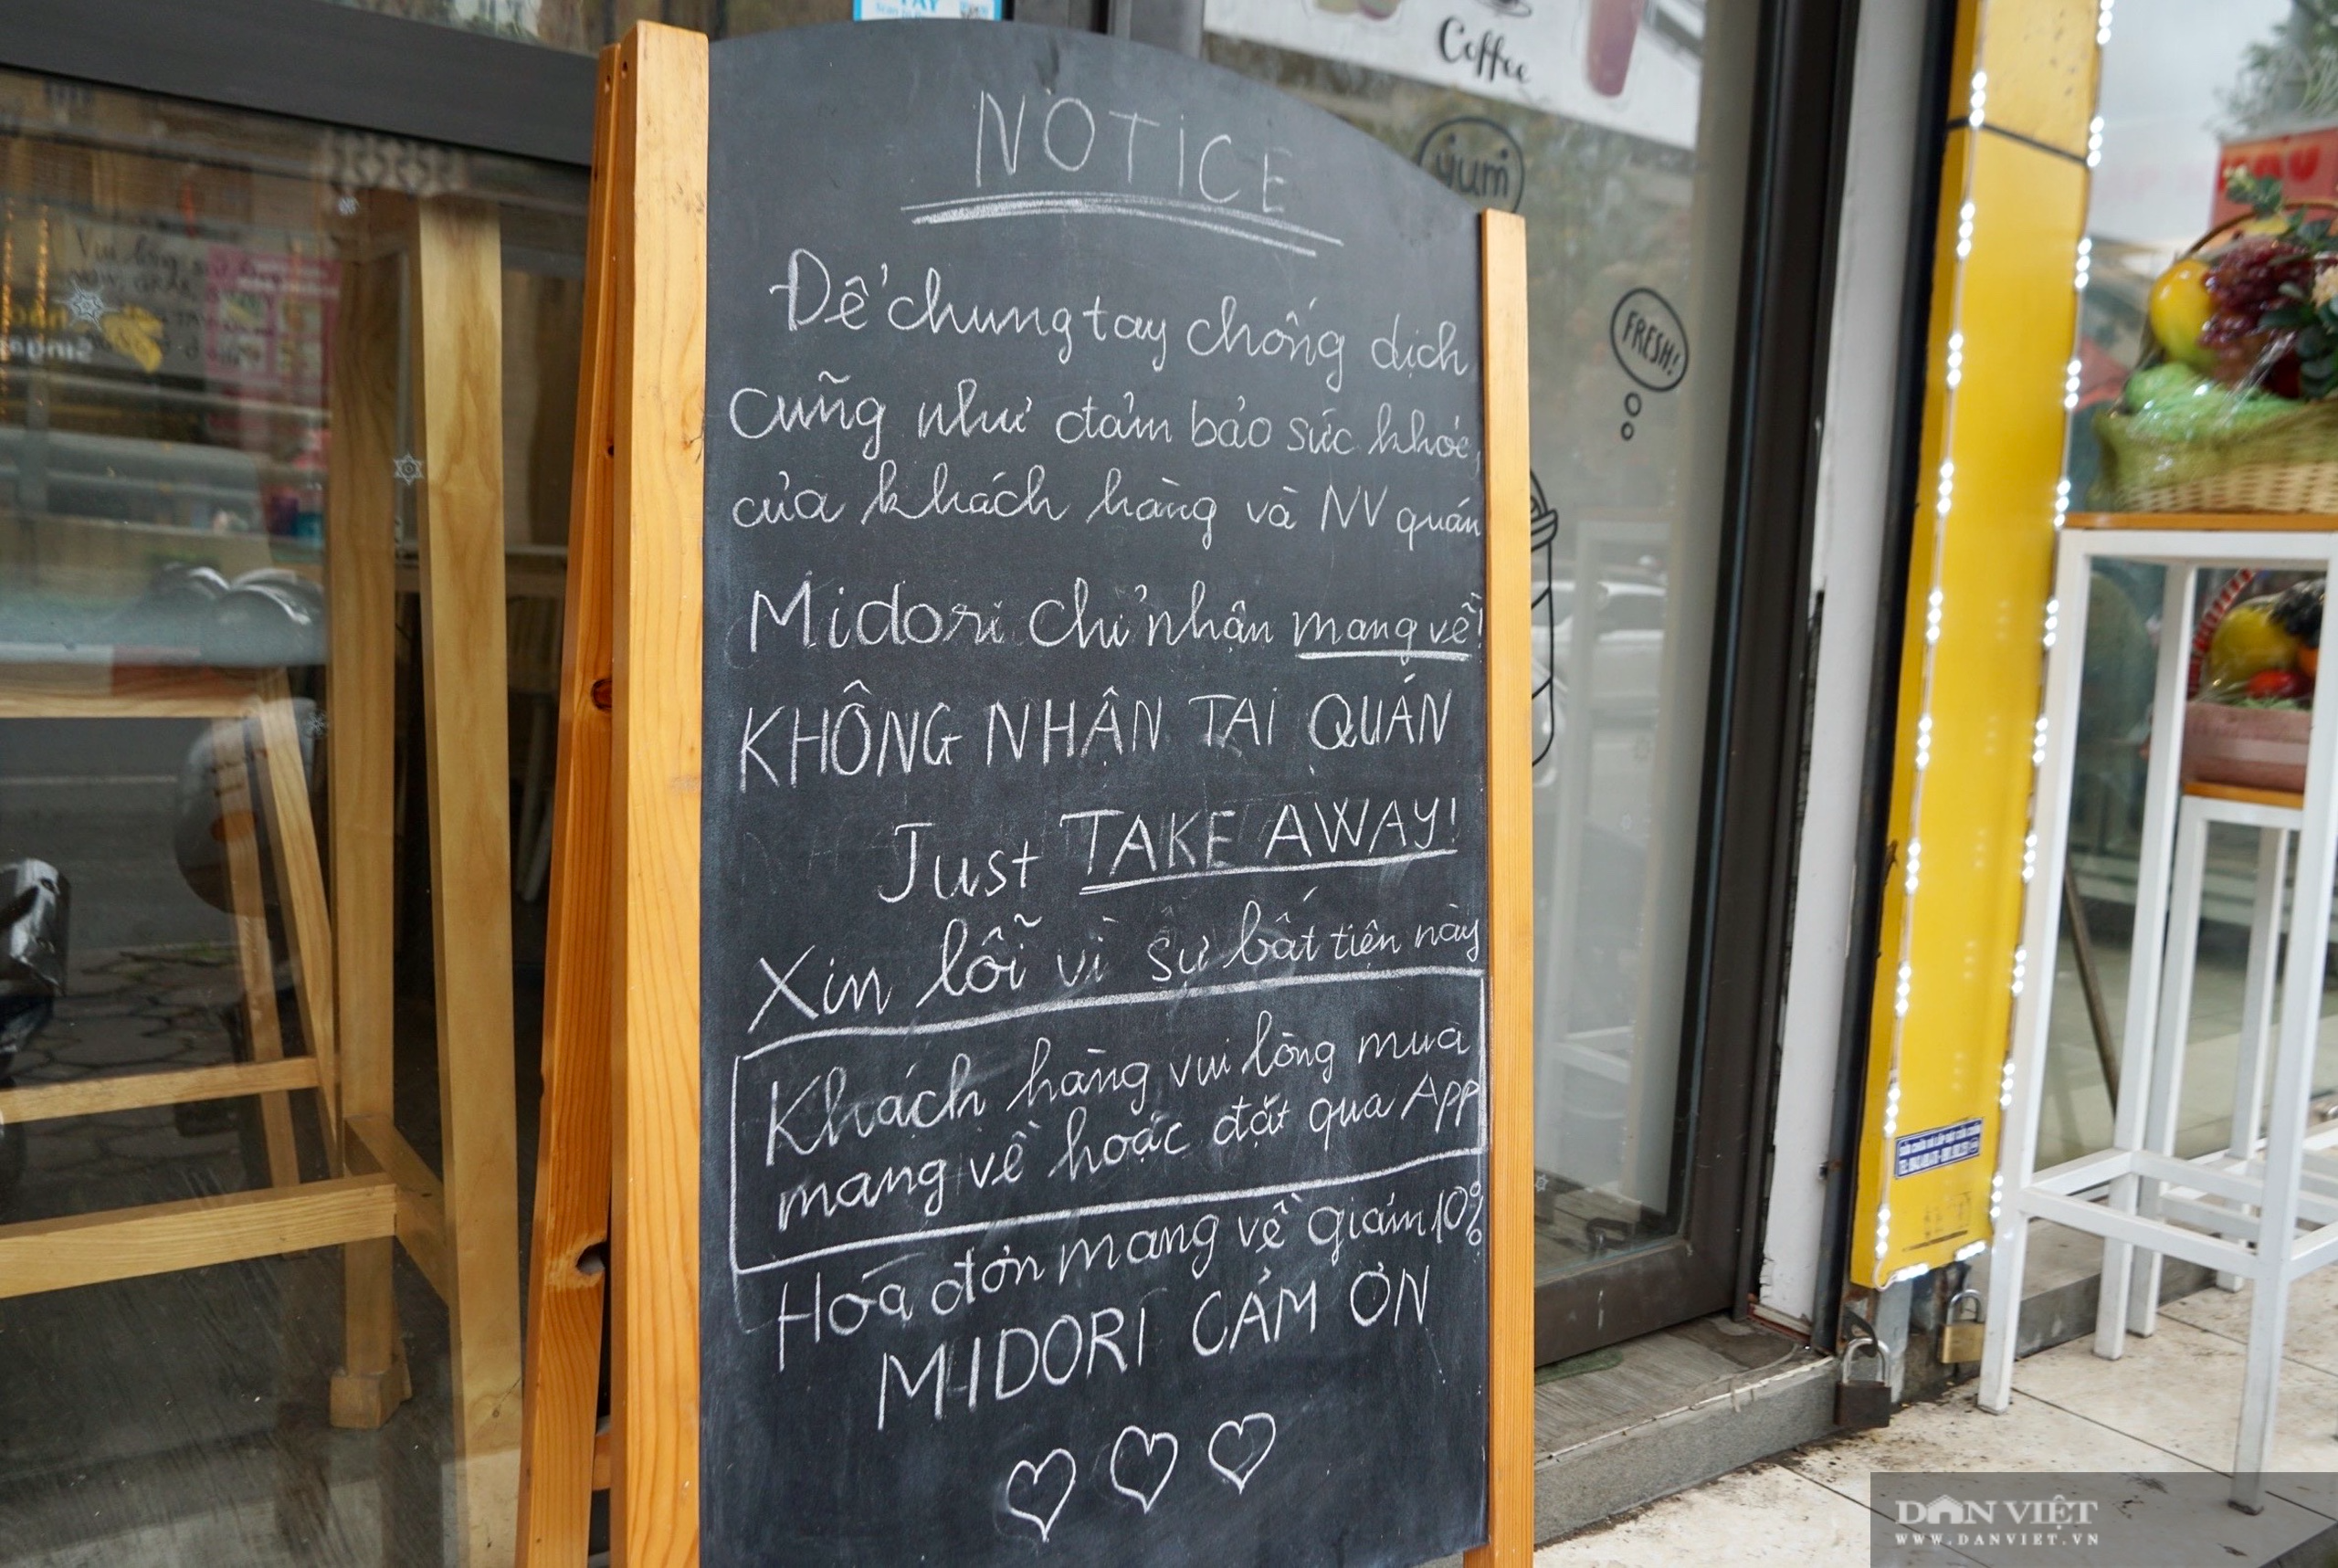 Coffee
yum
FRESH!
NOTICE
Để chung tay chống dịch
cũng như đảm bảo sức khỏe,
của khách hàng và NV quán
Midori chỉ nhận mang về!
KHÔNG NHẬN TẠI QUÁN
Just TAKE AWAY!
Xin lỗi vì sự bất tiện này
Khách hàng vui lòng mua
mang về hoặc đặt qua App
Hóa đơn mang về giảm 10%
MIDORI CẢM ƠN
DÂN VIỆT
WWW.DANVIET.VN